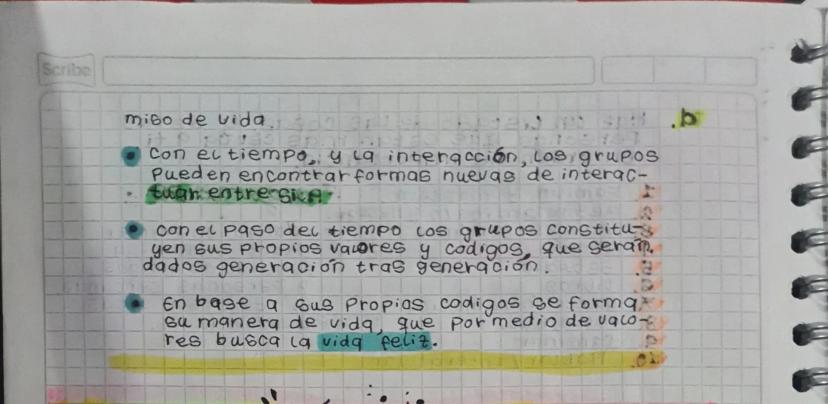 Scribe
miso de vida.
con el tiempo, y la interacción, los grupos
pueden encontrar formas nuevas de interac-
tuar entre si.
con el paso del tiempo los grupos constitu-
yen sus propios valores y codigos, que seran
dados generación tras generación.
En base a sus propios codigos se forma
su manera de vida, que por medio de valo-
res busca la vida feliz.